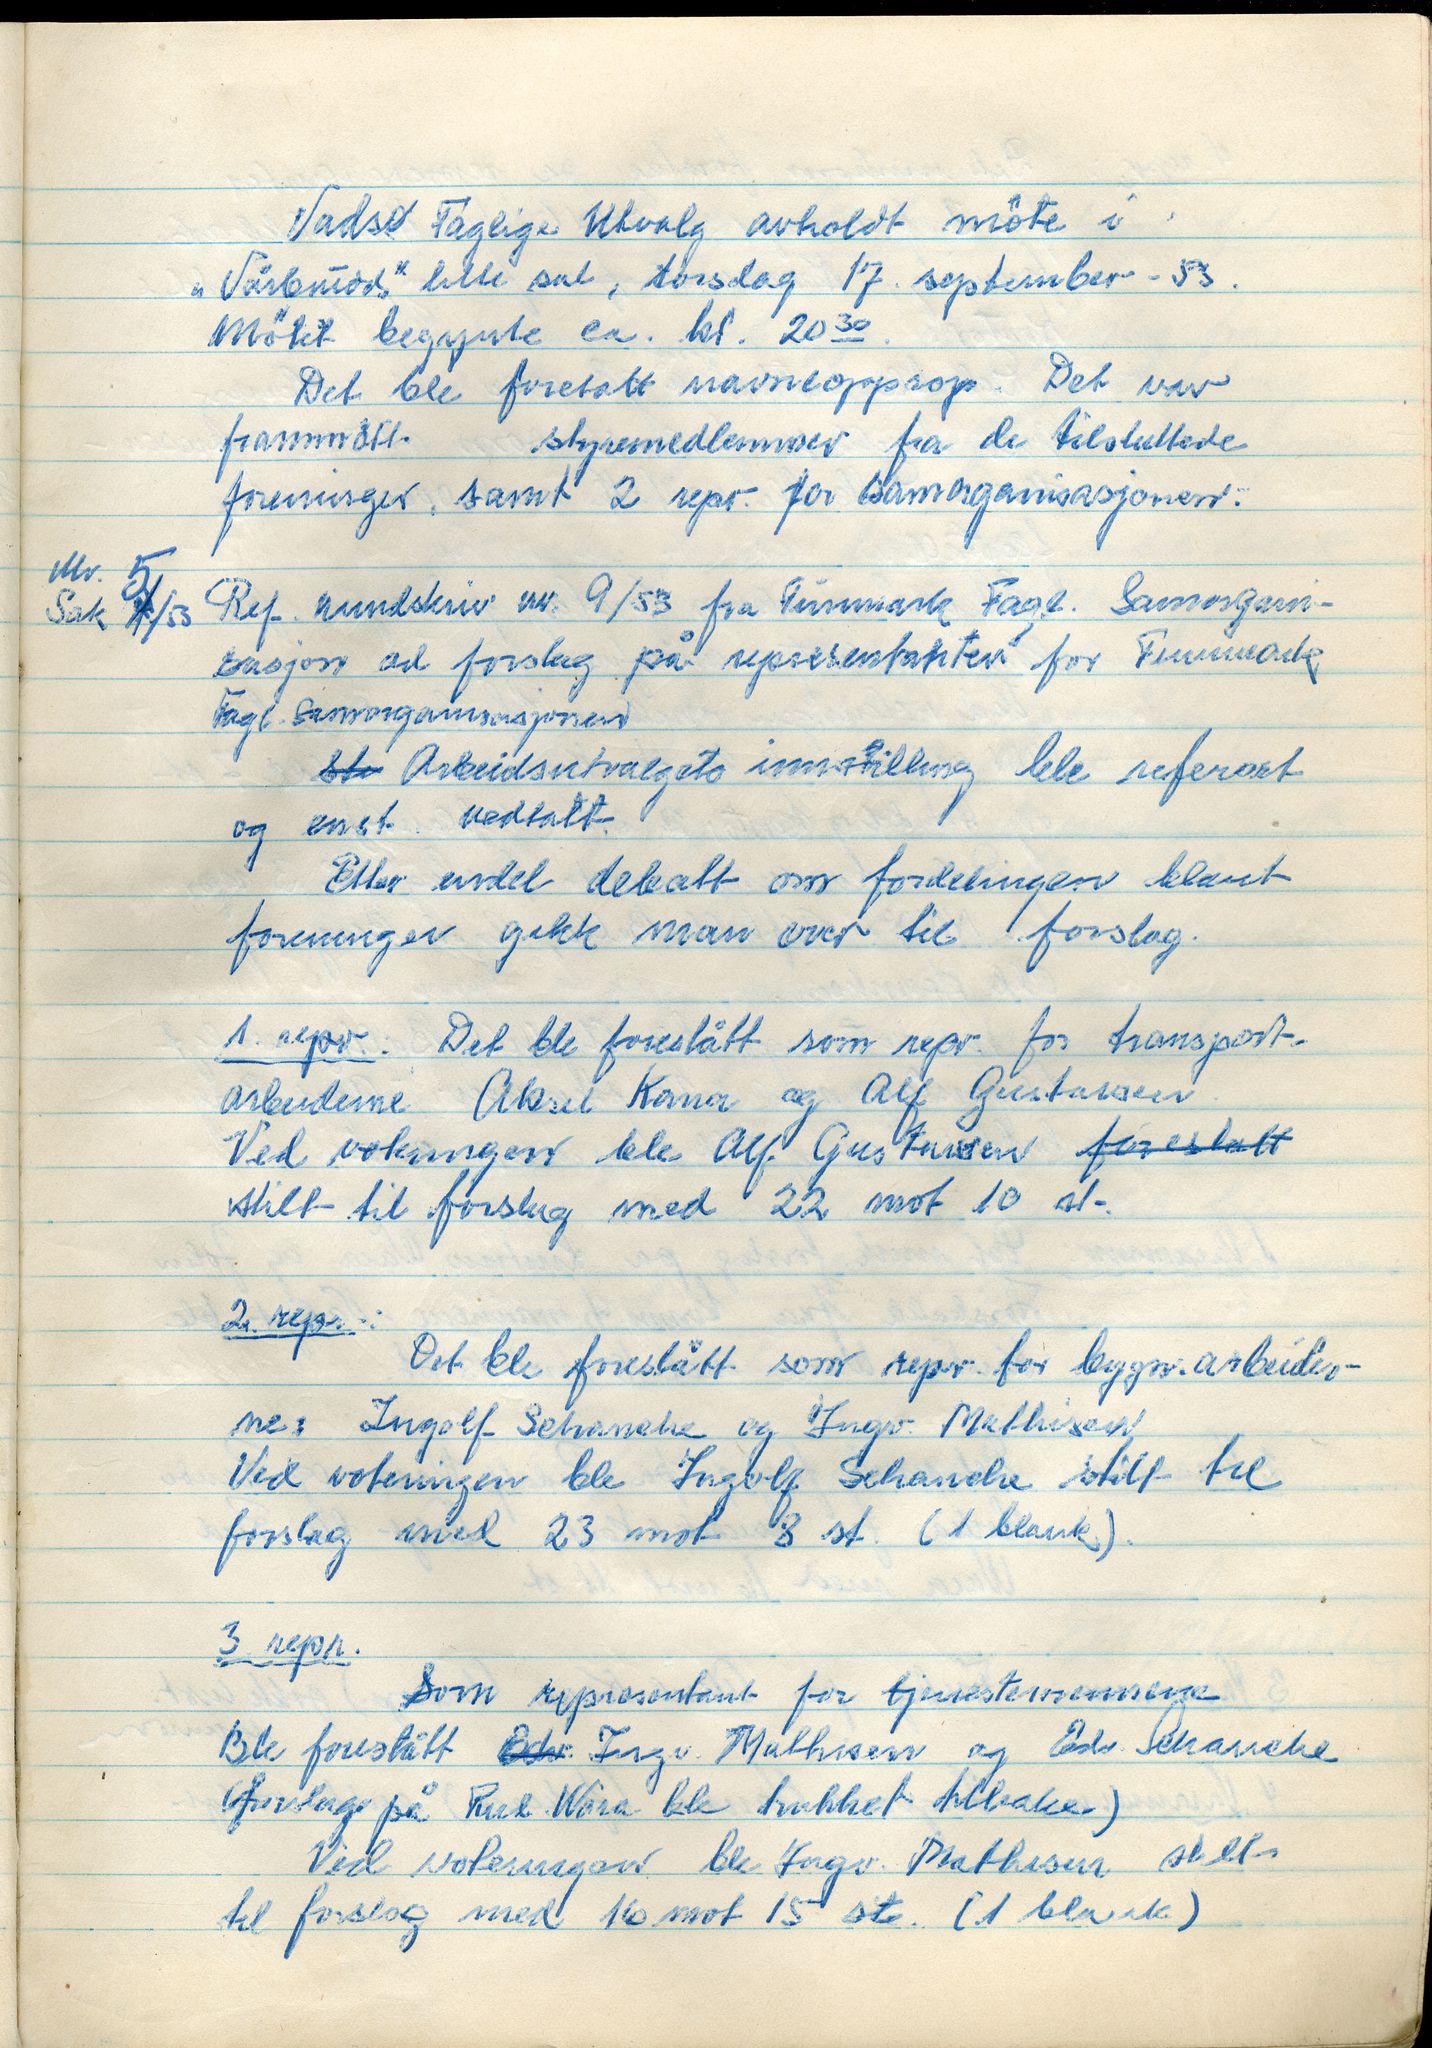 Vadsø Faglige Utvalg avholdt möte i
„Vårbrudds" lille sal, torsdag 17. september - 53.
Mötet begynte ca. kl. 20³⁰.
Det ble foretatt navneopprop. Det var
frammött styremedlemmer fra de tilsluttede
foreninger, samt 2 repr. for samorganisasjonen.
Nr. 5
Sak /53 Ref. rundskriv nr. 9/53 fra Finnmark Fagl. Samorgani-
sasjon ad forslag på representanter for Finnmark
Fagl. Samorganisasjonen
Arbeidsutvalgets innstilling ble referert
og enst. vedtatt.
Etter endel debatt om fordelingen blant
foreninger gikk man over til forslag.
1. repr.: Det ble foreslått som repr. for transport-
arbeiderne Aksel Kana og Alf Gustavsen
Ved voteringen ble Alf. Gustavsen foreslått
stilt til forslag med 22 mot 10 st.
2. repr.:
Det ble foreslått som repr. for bygn. arbeider-
ne: Ingolf Schanche og Ingv. Mathisen
Ved voteringen ble Ingolf Schanche stilt til
forslag med 23 mot 8 st. (1 blank).
3 repr.
Som representant for tjenestemennene
Ble foreslått Edv. Ingv. Mathisen og Edv. Schanche
(forslag på Wara ble trukket tilbake)
Ved voteringen ble Ingv. Mathisen stilt
til forslag med 16 mot 15 st. (1 blank)